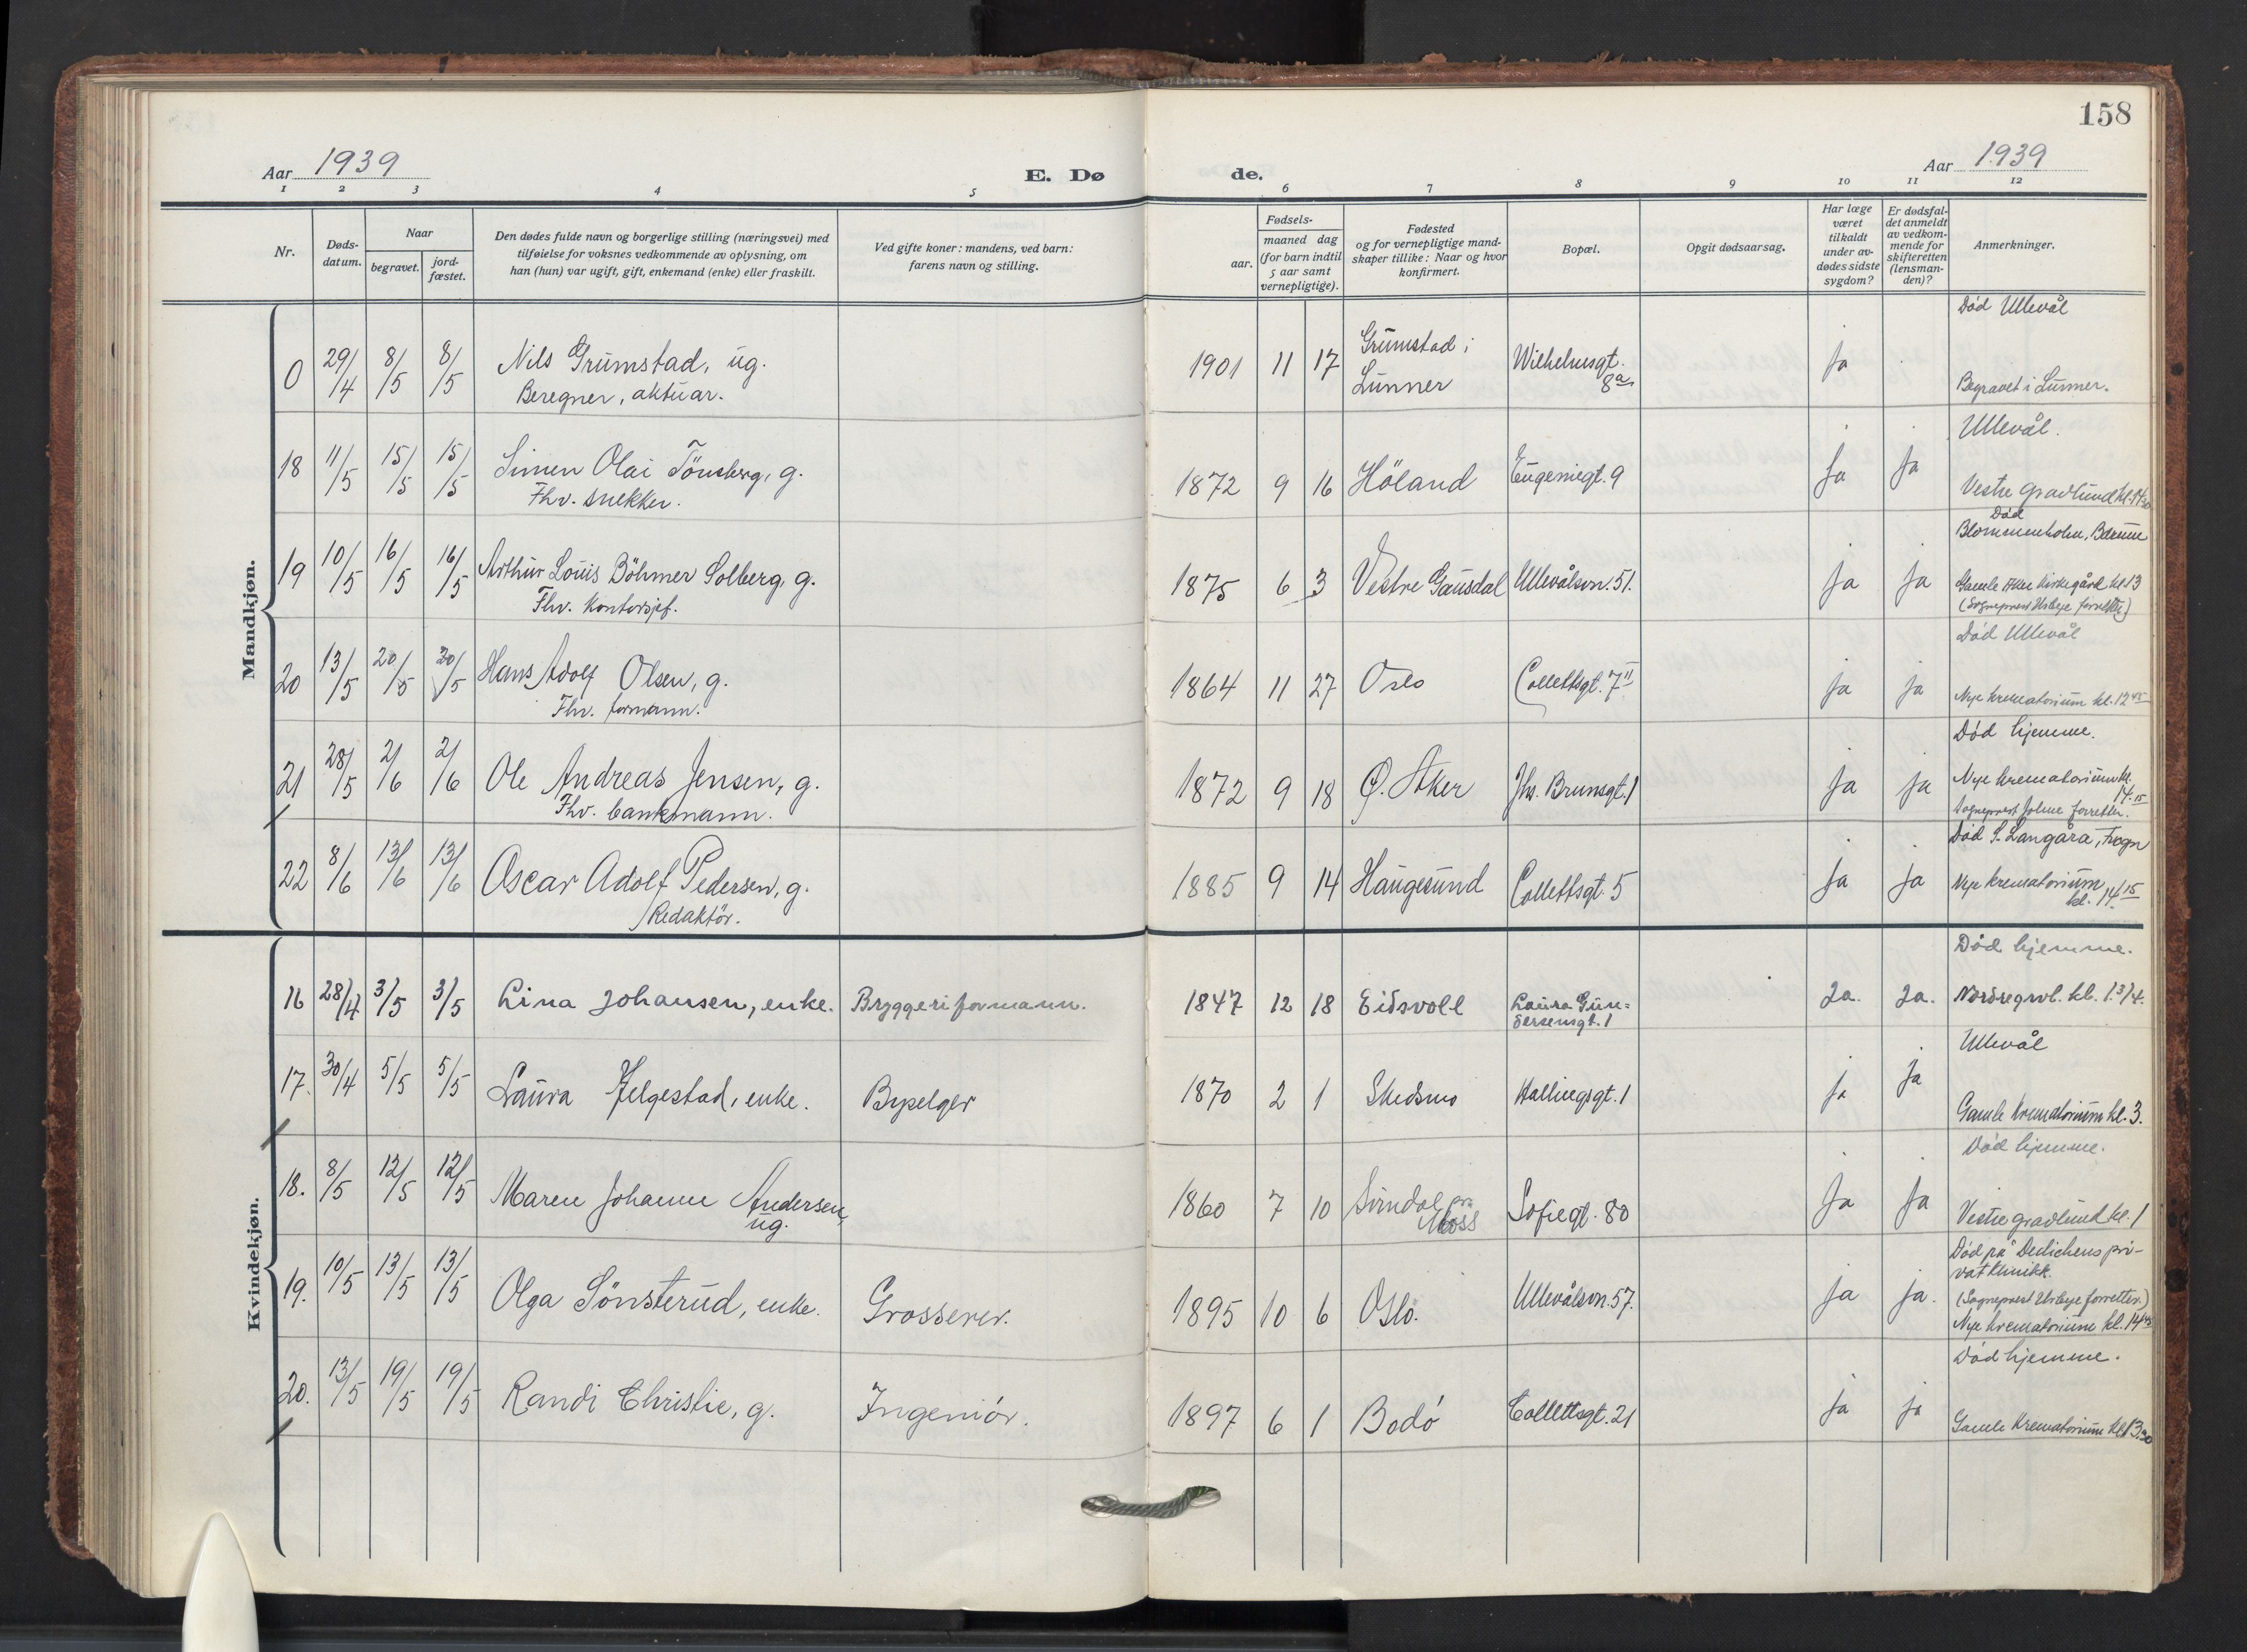 158
Aar 1939
E. Dø
de.
Aar 1939
1 2 3 4 5 6 7 8 9 10 11 12
Nr.
Døds-
datum.
Naar
begravet.
jord-
fæstet.
Den dødes fulde navn og borgerlige stilling (næringsvei) med
tilføielse for voksnes vedkommende av oplysning, om
han (hun) var ugift, gift, enkemand (enke) eller fraskilt.
Ved gifte koner: mandens, ved barn:
farens navn og stilling.
Fødsels-
aar.
maaned dag
(for barn indtil
5 aar samt
vernepligtige).
Fødested
og for vernepligtige mand-
skaper tillike: Naar og hvor
konfirmert.
Bopæl.
Opgit dødsaarsag.
Har læge
været
tilkaldt
under av-
dødes sidste
sygdom?
Er dødsfal-
det anmeldt
av vedkom-
mende for
skifteretten
(lensman-
den)?
Anmerkninger.
Mandkjøn.
Død Ullevål
0 29/4 8/5 8/5 Nils Grumstad, ug. 1901 11 17 Grumstad i Wilhelmsgt. ja
Beregner, aktuar. Lunner 8a Begravet i Lunner.
Ullevål.
18 11/5 15/5 15/5 Simen Olai Tönsberg, g. 1872 9 16 Höland Eugeniegt. 9 ja ja
Fhv. snekker. Vestre gravlund kl. 14 30
Död
Blommenholm, Bærum
19 10/5 16/5 16/5 Arthur Louis Böhmer Solberg, g. 1875 6 3 Vestre Gausdal Ullevålsvn. 51. ja ja Gamle Aker kirkegård kl. 13
Fhv. kontorsjef. (Sogneprest Urbye forretter)
Død Ullevål
20 13/5 20/5 20/5 Hans Adolf Olsen, g. 1864 11 27 Oslo Collettsgt. 7 II ja ja
Fhv. formann. Nye krematorium kl. 12 45
Død hjemme.
21 28/5 2/6 2/6 Ole Andreas Jensen, g. 1872 9 18 Ø. Aker Jhs. Brunsgt. 1 ja ja Nye krematorium kl. 14.15
Fhv. bankmann. Sogneprest forretter.
Död S. Langåra, Frogn
22 8/6 13/6 13/6 Oscar Adolf Pedersen, g. 1885 9 14 Haugesund Collettsgt. 5 ja ja Nye krematorium
Redaktör. kl. 14 15
Kvindekjøn.
Død hjemme.
16 28/4 3/5 3/5 Lina Johansen, enke. Bryggeriformann. 1847 12 18 Eidsvoll Laura Gun= Ja. Ja. Nordre grvl. kl. 1 3/4.
dersensgt. 1
Ullevål
17. 30/4 5/5 5/5 Laura Helgestad, enke. Bypelger 1870 2 1 Skedsmo Hallingsgt. 1 ja ja
Gamle krematorium kl. 3.
Død hjemme.
18. 8/5 12/5 12/5 Maren Johanne Andersen, 1860 7 10 pr. Moss Sofiegt. 80 ja ja
ug. Vestre gravlund kl. 1
Död på Dedichens pri-
vatklinikk.
19. 10/5 13/5 13/5 Olga Sönsterud, enke. Grosserer. 1895 10 6 Oslo. Ullevålsvn. 57. ja ja. (Sogneprest Urbye forretter.)
Nye krematorium kl. 14 45
Död hjemme.
20. 13/5 19/5 19/5 Randi Christie, g. Ingeniör. 1897 6 1 Bodö Collettsgt. 21 ja ja
Gamle krematorium kl. 13 30